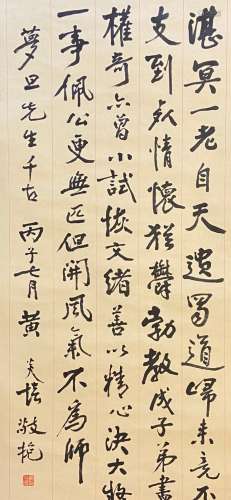 湛冥一老自天遺蜀道歸來竟不
支到死情懷猶鬱勃教戊子弟畫
權奇亦曾小試恢文緒善以精心決大
一事佩公更無匹但開風氣不為師
夢旦先生千古 丙子七月黃炎培敬